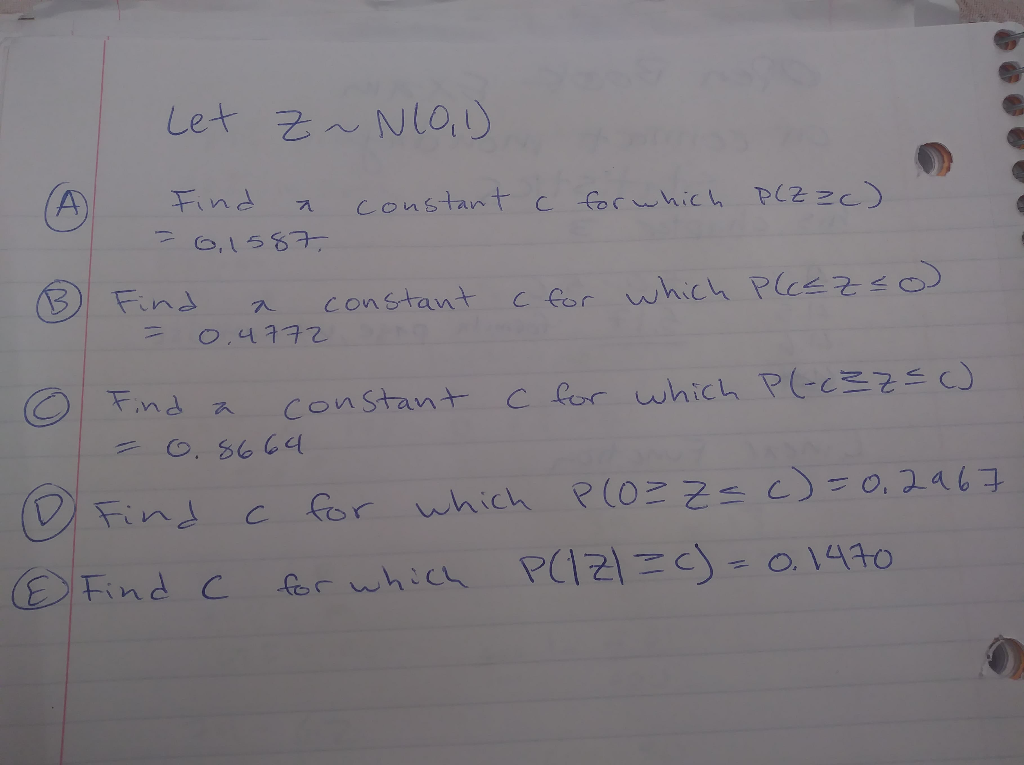 Let Z ~ N(0,1)
(A) Find a constant c for which P(Z ≥ c)
= 0.1587.
(B) Find a constant c for which P(c ≤ Z ≤ 0)
= 0.4772
(C) Find a constant c for which P(-c ≥ Z ≤ c)
= 0.8664
(D) Find c for which P(0 ≥ Z ≤ c) = 0.2967
(E) Find c for which P(|Z| ≥ c) = 0.1470